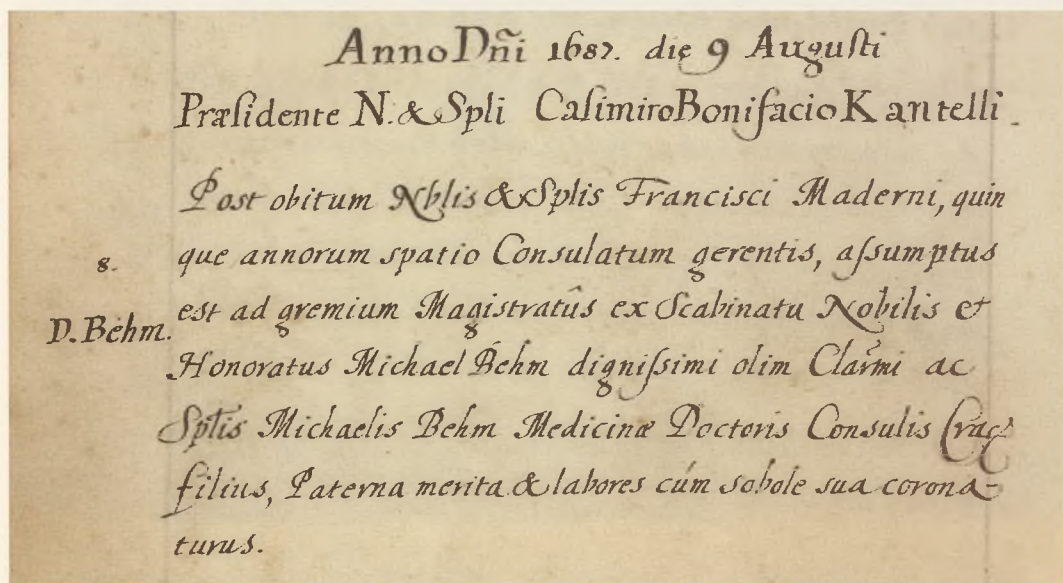 Anno Dñi 1687. die 9 Augusti
Præsidente N. & Spli Casimiro Bonifacio Kantelli.
Post obitum Nblis & Splis Francisci Maderni, quin
8. que annorum spatio Consulatum gerentis, assumptus
est ad gremium Magistratûs ex Scabinatu Nobilis et
D. Behm. Honoratus Michael Behm dignissimi olim Clarmi ac
Splis Michaelis Behm Medicinæ Doctoris Consulis Crac
filius, Paterna merita & labores cúm sobole sua corona-
turus.